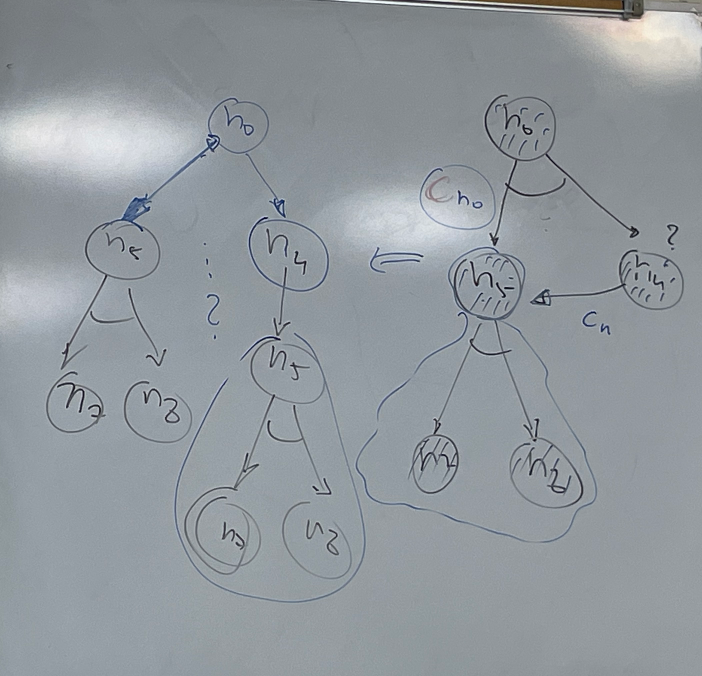 n0
n5
n4
?
n5
n7
n8
n7
n8
n0
Cn0
?
n5
n4
Cn
n7
n8